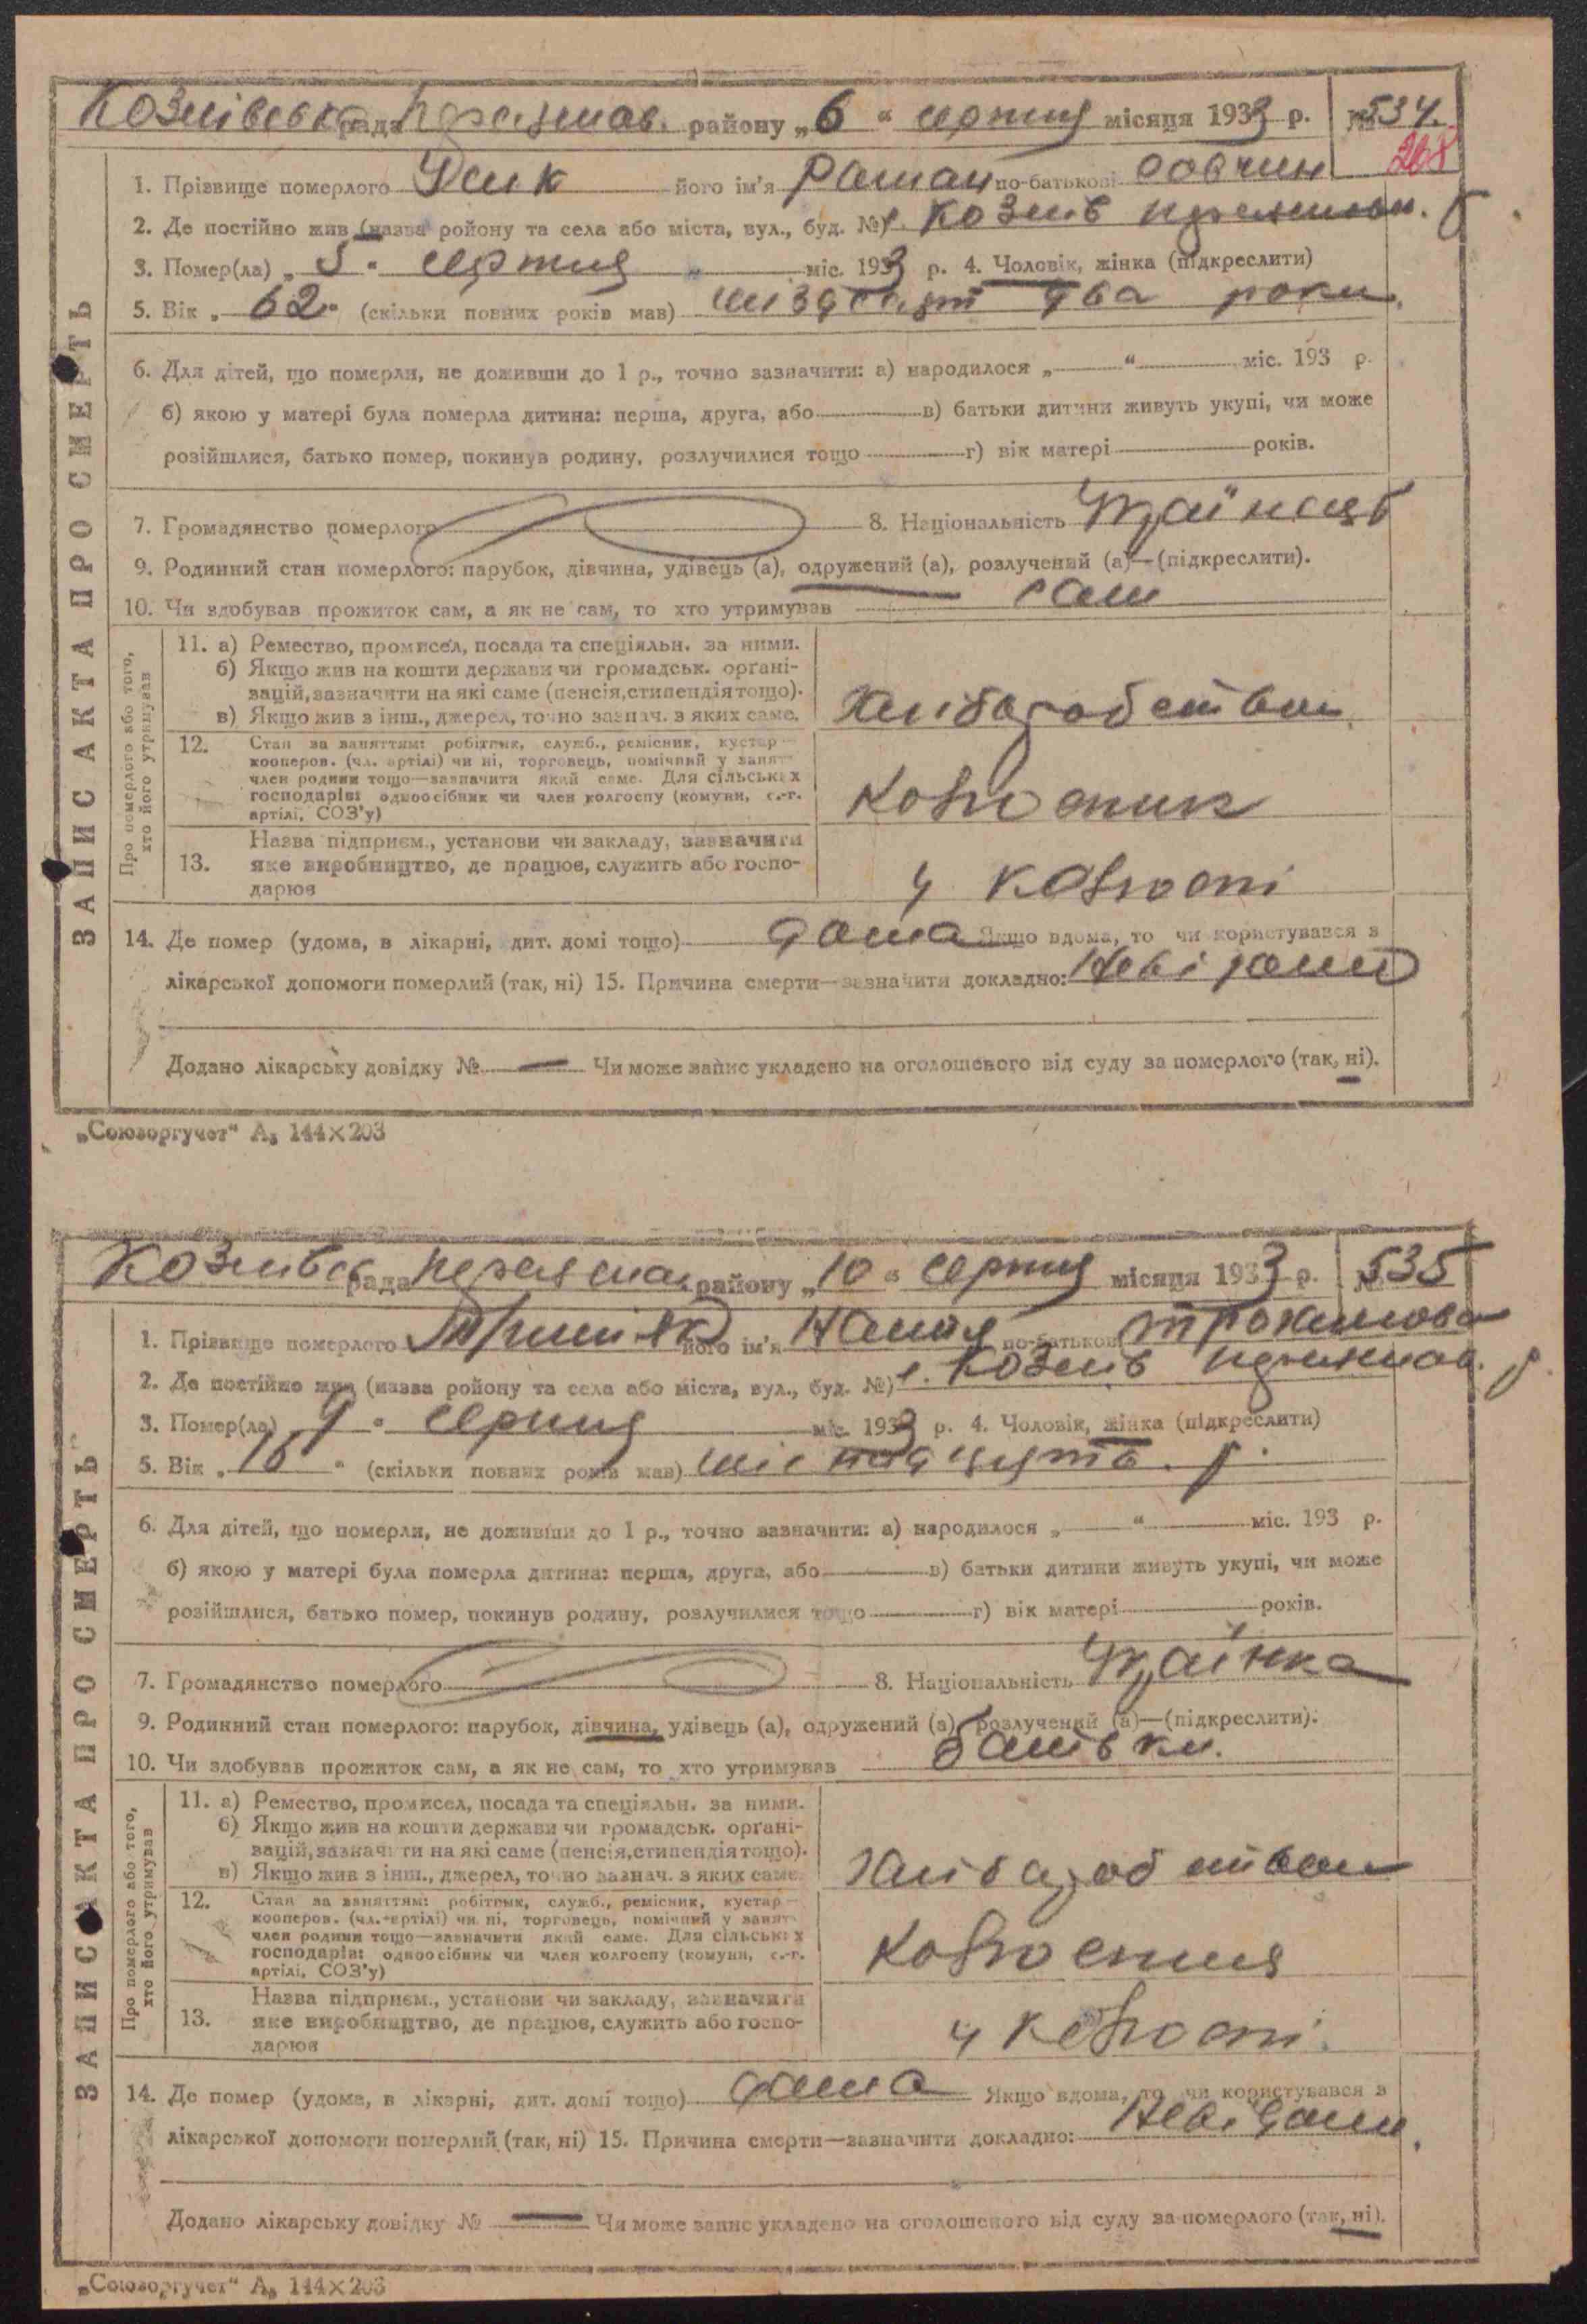 Козлівська рада Переяслав. району „6“ серпня місяця 1933 р. № 534.
268
1. Прізвище померлого його ім'я Роман по-батькові
2. Де постійно жив (назва ройону та села або міста, вул., буд. №) с. Козлів
3. Помер(ла) „5“ серпня міс. 1933 р. 4. Чоловік, жінка (підкреслити)
5. Вік „62“ (скільки повних років мав) шізде́сят два роки.
6. Для дітей, що померли, не доживши до 1 р., точно зазначити: а) народилося „ “ міс. 193 р.
б) якою у матері була померла дитина: перша, друга, або в) батьки дитини живуть укупі, чи може
розійшлися, батько помер, покинув родину, розлучилися тощо г) вік матері років.
7. Громадянство померлого 8. Національність Українець
9. Родинний стан померлого: парубок, дівчина, удівець (а), одружений (а), розлучений (а)—(підкреслити).
10. Чи здобував прожиток сам, а як не сам, то хто утримував сам
ЗАПИС АКТА ПРО СМЕРТЬ
Про померлого або того, хто його утримував
11. а) Ремество, промисел, посада та спеціяльн. за ними.
б) Якщо жив на кошти держави чи громадськ. орґані-
зацій, зазначити на які саме (пенсія, стипендія тощо).
в) Якщо жив з інш., джерел, точно зазнач. з яких саме.
Хлібаробством
12. Стан за заняттям: робітник, служб., ремісник, кустар—
кооперов. (чл. артілі) чи ні, торговець, помічний у занят
член родини тощо—зазначити який саме. Для сільських
господарів: одноосібник чи член колгоспу (комуни, с.-г.
артілі, СОЗ'у)
Колгосник
13. Назва підприєм., установи чи закладу, зазначити
яке виробництво, де працює, служить або госпо-
дарює
у колгоспі
14. Де помер (удома, в лікарні, дит. домі тощо) дома Якщо вдома, то чи користувався з
лікарської допомоги померлий (так, ні) 15. Причина смерти—зазначити докладно: Невідомо
Додано лікарську довідку № — Чи може запис укладено на оголошеного від суду за померлого (так, ні).
„Союзоргучет“ А₅ 144×203
Козлівська рада Переяслав. району „10“ серпня місяця 1933 р. № 535
1. Прізвище померлого його ім'я по-батькові Трохимова
2. Де постійно жив (назва ройону та села або міста, вул., буд. №) с. Козлів
3. Помер(ла) „9“ серпня міс. 1933 р. 4. Чоловік, жінка (підкреслити)
5. Вік „16“ (скільки повних років мав) шістнадцять. р.
6. Для дітей, що померли, не доживши до 1 р., точно зазначити: а) народилося „ “ міс. 193 р.
б) якою у матері була померла дитина: перша, друга, або в) батьки дитини живуть укупі, чи може
розійшлися, батько помер, покинув родину, розлучилися тощо г) вік матері років.
7. Громадянство померлого 8. Національність Українка
9. Родинний стан померлого: парубок, дівчина, удівець (а), одружений (а), розлучений (а)—(підкреслити).
10. Чи здобував прожиток сам, а як не сам, то хто утримував батьки.
ЗАПИС АКТА ПРО СМЕРТЬ
Про померлого або того, хто його утримував
11. а) Ремество, промисел, посада та спеціяльн. за ними.
б) Якщо жив на кошти держави чи громадськ. орґані-
зацій, зазначити на які саме (пенсія, стипендія тощо).
в) Якщо жив з інш., джерел, точно зазнач. з яких саме.
Хлібаробством
12. Стан за заняттям: робітник, служб., ремісник, кустар—
кооперов. (чл. артілі) чи ні, торговець, помічний у занят
член родини тощо—зазначити який саме. Для сільських
господарів: одноосібник чи член колгоспу (комуни, с.-г.
артілі, СОЗ'у)
13. Назва підприєм., установи чи закладу, зазначити
яке виробництво, де працює, служить або госпо-
дарює
у колгоспі.
14. Де помер (удома, в лікарні, дит. домі тощо) дома Якщо вдома, то чи користувався з
лікарської допомоги померлий (так, ні) 15. Причина смерти—зазначити докладно: Невідомо.
Додано лікарську довідку № — Чи може запис укладено на оголошеного від суду за померлого (так, ні).
„Союзоргучет“ А₅ 144×203